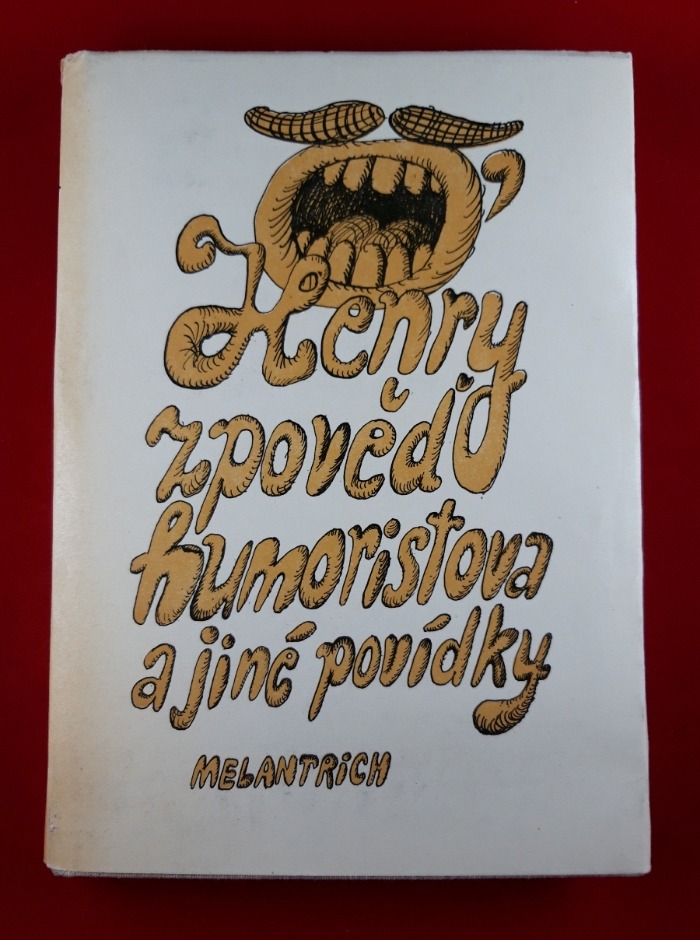 O'
Henry
zpověď
humoristova
a jiné povídky
MELANTRiCH